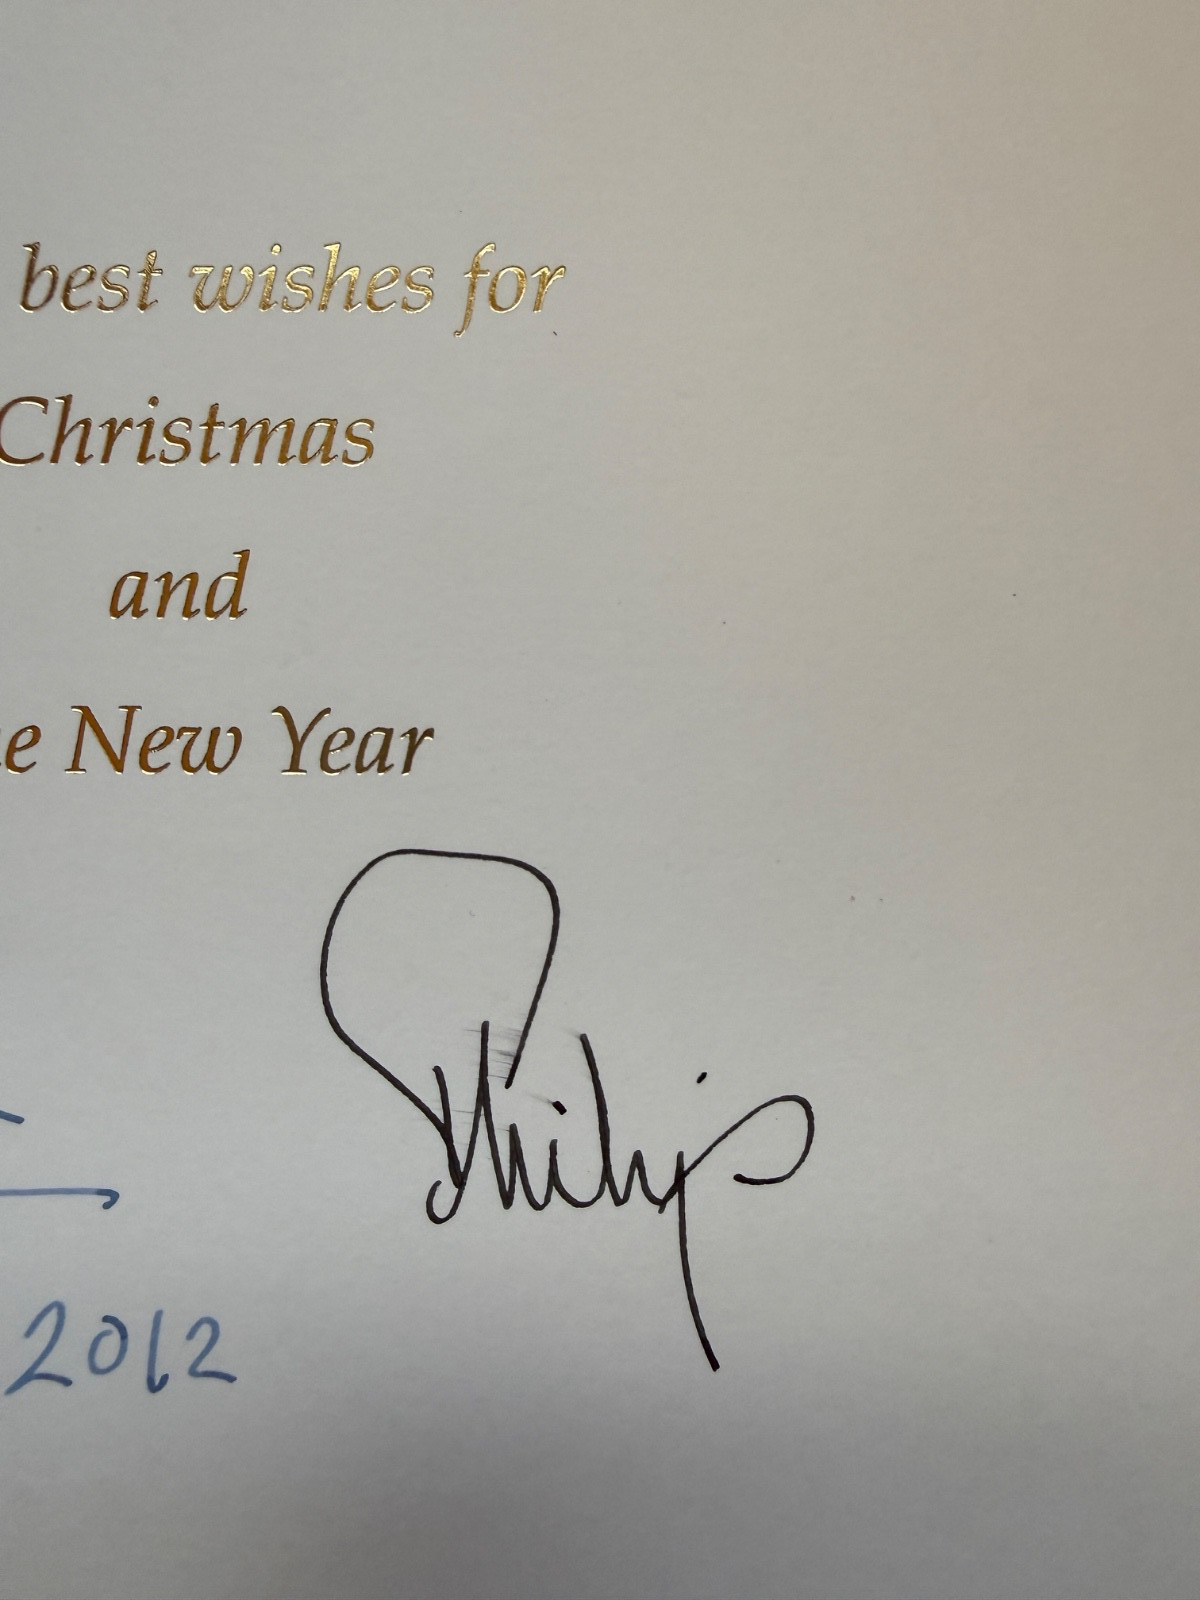 best wishes for
Christmas
and
New Year
Philip
2012